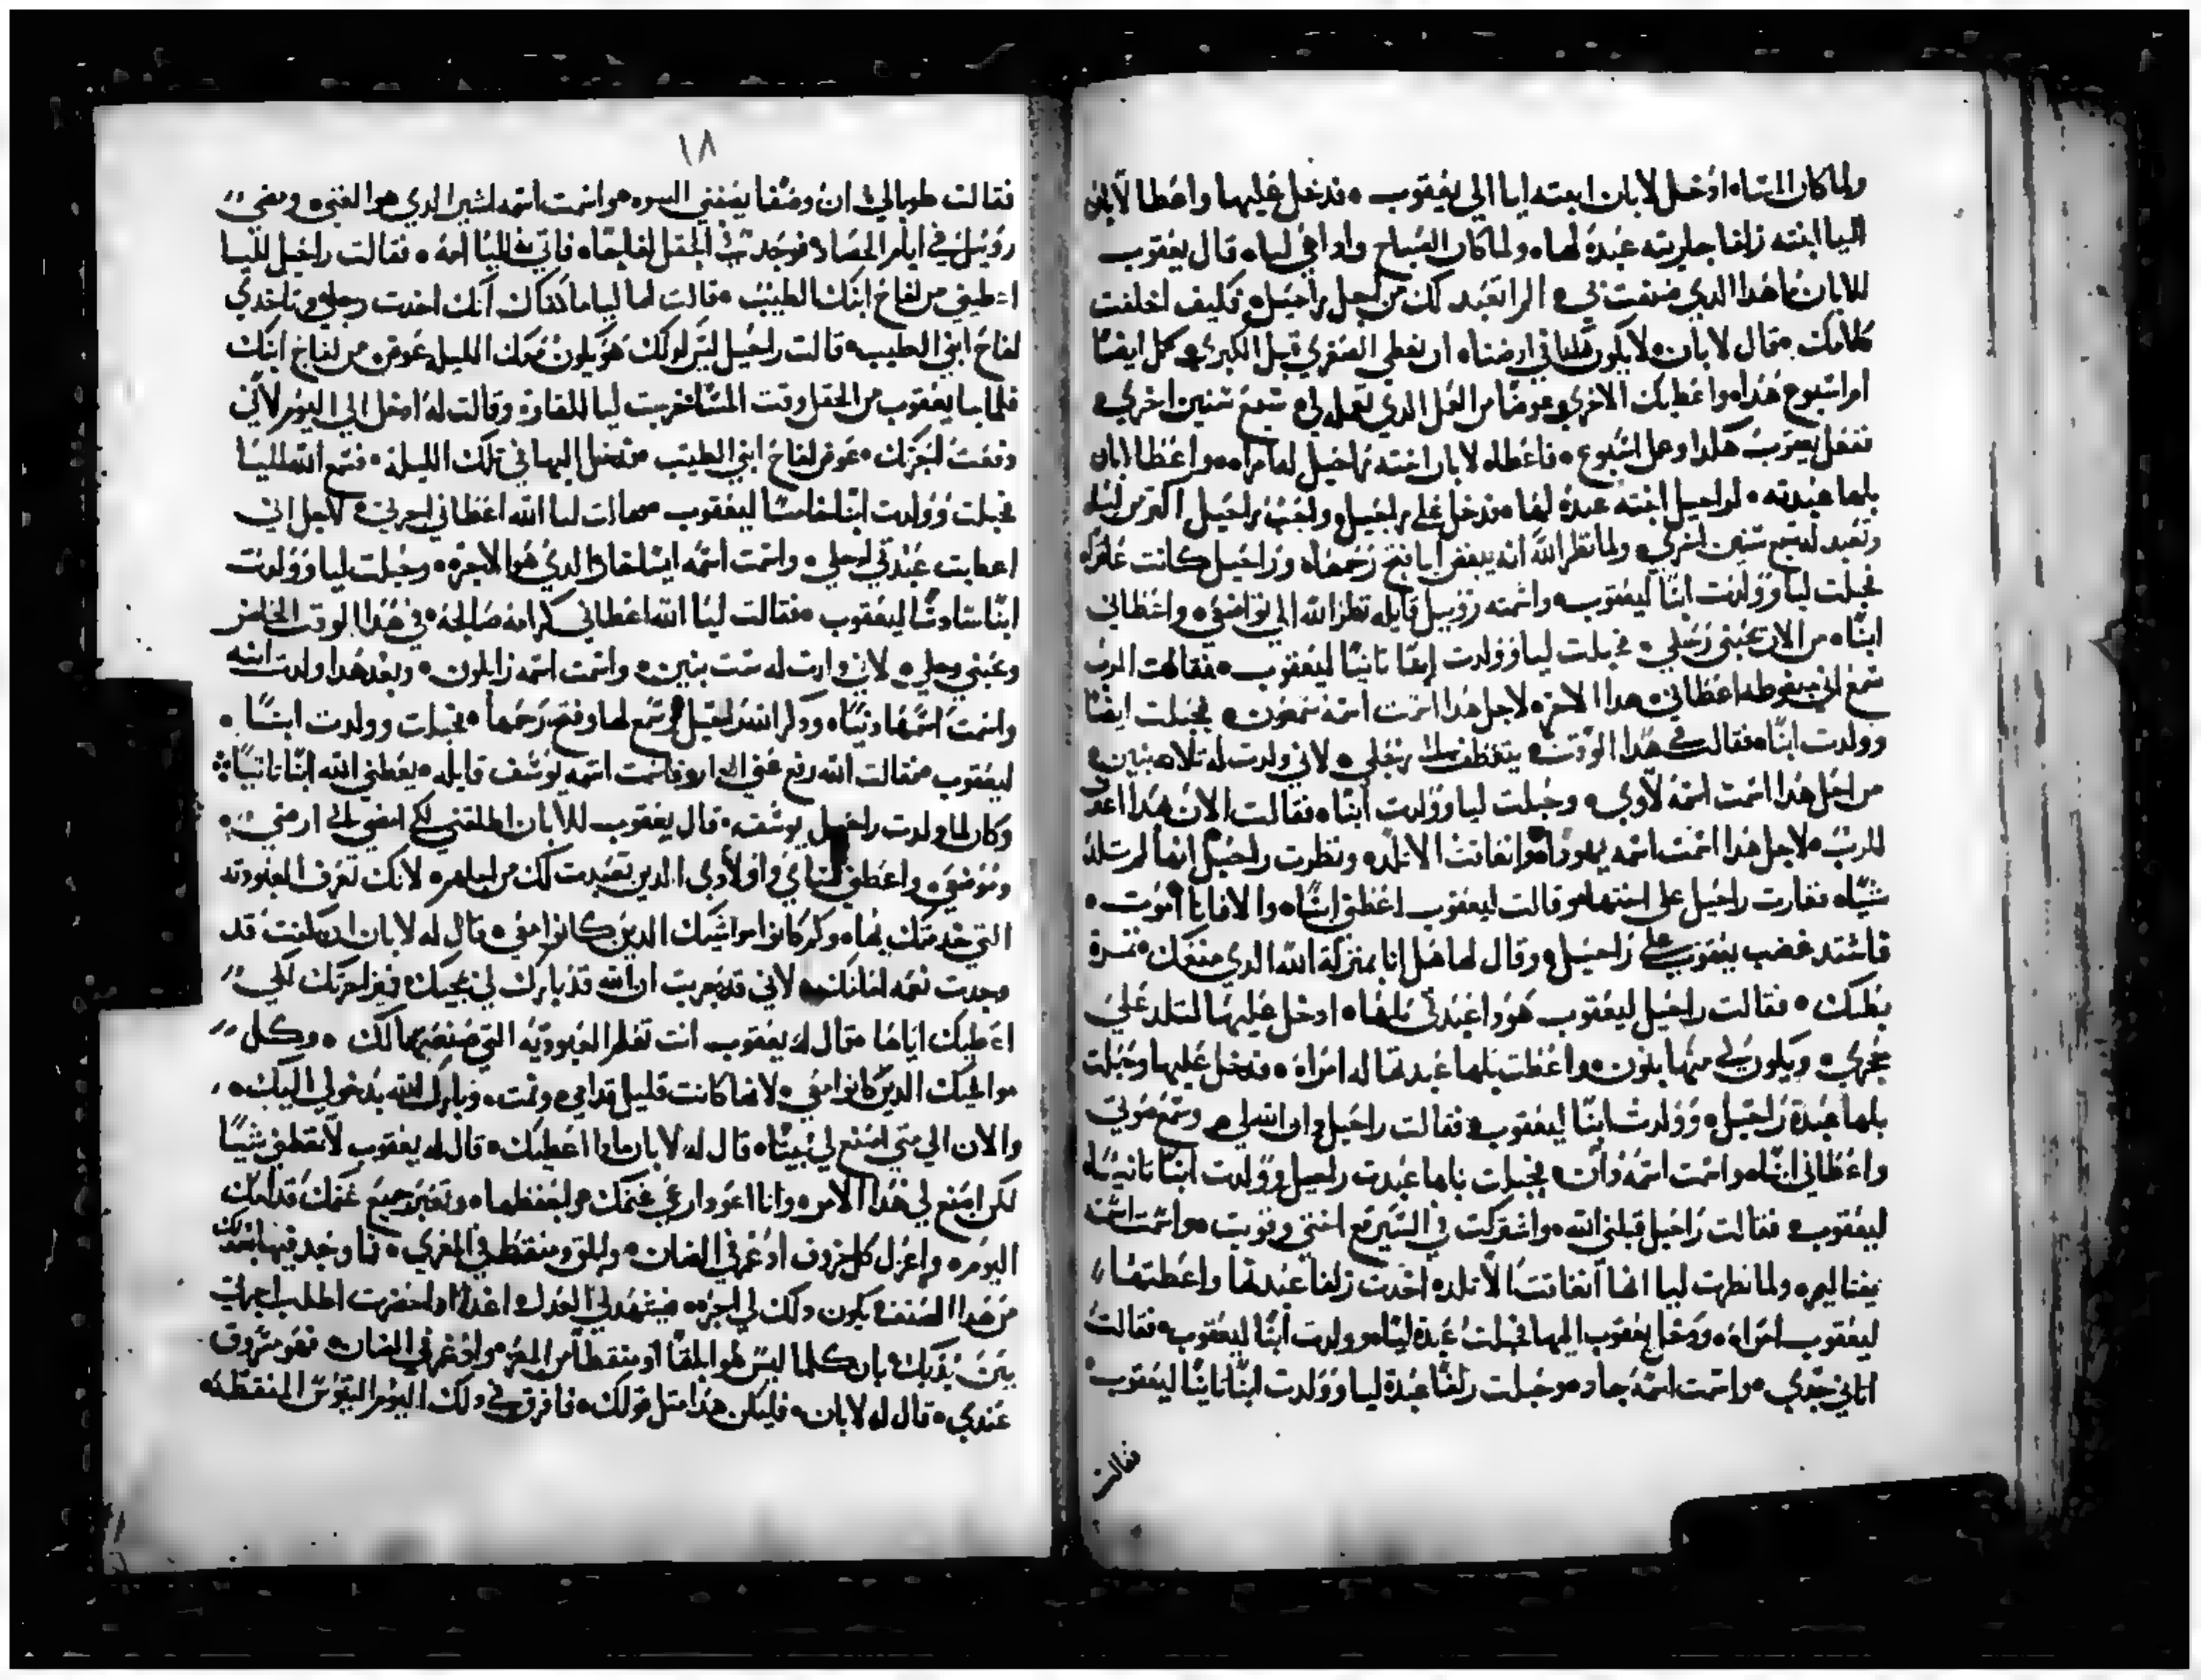 ولما كان المساء ادخل لابان ابنته ليا الي يعقوب • فدخل عليها واعطا لابان
اليا ابنته زلفا جاريته عبدة لها • ولما كان الصباح واداهي ليا • قال يعقوب
للابان ما هدا الدي صنعت بي • الم اتعبد لك من اجل راحيل • فكيف اخلفت
كلامك • فقال لابان • لا يكون هكدا في ارضنا • ان نعطي الصغري قبل الكبري • كمل ايضا
امر اسبوع هده • واعطيك الاخري • عوضا من العمل الدي تعمله لي • سبع سنين اخري •
ففعل يعقوب هكدا وكمل اسبوع • فاعطاه لابان ابنته راحيل له امراه • واعطا لابان
بلها عبدته • لراحيل ابنته عبدة لها • فدخل علي راحيل • واحب راحيل اكتر من ليا •
وتعبد له سبع سنين اخري • ولما نظر الله انه يبغض ليا فتح رحمها • وراحيل كانت عاقر •
فحبلت ليا وولدت ابنا ليعقوب • واسمته روبيل قايله نظر الله الي تواضعي • واعطاني
ابنا • من الان يحبني رجلي • فحبلت ليا وولدت ايضا تانيا ليعقوب • فقالت الرب
سمع اني مبغوضه اعطاني هدا الاخر • لاجل هدا اسمت اسمه سمعون • فحبلت ايضا
وولدت ابنا • فقالت في هدا الوقت • يتعطف علي رجلي • لاني ولدت له تلاه بنين •
من اجل هدا اسمت اسمه لاوي • وحبلت ليا وولدت ابنا • فقالت الان هدا اعترف
للرب • لاجل هدا اسمت اسمه يهودا • وانها فاتت الا تلد • ونظرت راحيل انها لم تلد
شيا • فغارت راحيل علي اختها • وقالت ليعقوب اعطني ابنا • والا فانا اموت •
فاشتد غضب يعقوب علي راحيل • وقال لها هل انا بمنزلة الله الدي منعك • تمرة
بطنك • فقالت راحيل ليعقوب هودا عبدتي بلها • ادخل عليها لتلد علي
حجري • ويكون لي منها بنون • واعطت بلها عبدتها له امراة • فدخل عليها وحبلت
بلها عبدة راحيل • وولدت ابنا ليعقوب • فقالت راحيل • ان الله لي • وسمع صوتي
واعطاني ابنا • واسمت اسمه دان • فحبلت بلها عبدت راحيل وولدت ابنا تانيا •
ليعقوب • فقالت راحيل قبلني الله • واشتركت في السير مع اختي وقويت • واسمت اسمه
نفتاليم • ولما نظرت ليا انها انها فاتت الا تلد • اخدت زلفا عبدتها واعطتها
ليعقوب امراة • ودخل يعقوب اليها فحبلت عبدة ليا • وولدت ابنا ليعقوب • فقالت
اتاني جدي • واسمت اسمه جاد • وحبلت زلفا عبدة ليا وولدت ابنا تانيا ليعقوب
فقالت
١٨
فقالت طوبا لي ان يغبطني النسوه • واسمت اسمه اشير الدي هو الغني • ومضي
روبيل في ايام الحصاد • فوجد في الحقل لفاحا • فاتي به لليا امه • فقالت راحيل لليا
اعطيني من لفاح ابنك الطيب • فقالت لها ليا ما كفاك انك اخدت رجلي • وتاخدي
لفاح ابني الطيب • قالت راحيل ليس لدلك هو يكون معك الليله عوض من لفاح ابنك
فلما جا يعقوب من الحقل وقت المسا خرجت ليا للقاه • وقالت له ادخل الي اليوم لاني
دفعت اجرتك • عوض لفاح ابني الطيب • فدخل اليها في تلك الليلة • فسمع الله لليا
فحبلت وولدت ابنا خامسا ليعقوب • فقالت ليا الله اعطاني اجرتي • لاجل اني
اعطيت عبدتي لرجلي • واسمت اسمه ايساخار الدي هو الاجرة • وحبلت ليا وولدت
ابنا سادسا ليعقوب • فقالت ليا الله اعطاني كرامة صالحة • في هدا الوقت الحاضر
وحبني رجلي • لاني ولدت له ست بنين • واسمت اسمه زابلون • وبعد هدا ولدت ابنه
واسمت اسمها دينا • ودكر الله راحيل • وسمع لها وفتح رحمها • فحبلت وولدت ابنا •
ليعقوب • فقالت الله رفع عني العار • فاسمت اسمه يوسف قايله • يعطني الله ابنا تانيا
وكان لما ولدت راحيل يوسف • قال يعقوب للابان اطلقني لكي امضي الي ارضي •
وموضعي • واعطني نساي واولادي الدين تعبدت لك من اجلهم • لانك تعرف العبوديه
التي خدمتك بها • وكم كانوا مواشيك الدين كانوا معي • قال له لابان ان كنت قد
وجدت نعمه امامك • لاني قد جربت ان الله قد بارك لي بمجيك • فميز اجرتك لكي
اعطيك اياها • فقال له يعقوب انت تعلم العبوديه التي صنعتها لك • وكل
مواشيك الدين كانوا معي • لانها كانت قليل قدامي • ونمت • وبارك الله بدخولي اليك •
والان الي متي اصنع لي بيتا • قال له لابان مادا اعطيك • قال له يعقوب لا تعطني شيا
لكن اصنع لي هدا الامر • وانا اعود ارعي غنمك • واحفظها • وتعبر جميع غنمك قدامك
اليوم • واعزل كل خروف ادغر في الضان • وابلق ومنقط في المعزي •
من هدا الصنف يكون دلك لي اجره • فيشهد لي العدل • غدا • احضرت اطلب اجرتي
بين يديك بان كلما ليس هو ابلقا او منقطا من المعز • وادغر في الضان • فهو مسروق
عندي • قال له لابان • فليكن هدا متل قولك • فافرق في دلك اليوم التيوس المنقطه